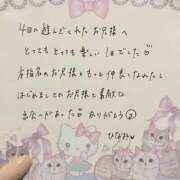 4日の遊んでくれたお兄様へ
とってもとっても楽しい1日でした
本指名のお兄様ともっと仲良くなれたし
はじめましてのお兄様と素敵な
出会いがあった ありがとう
ひなみ